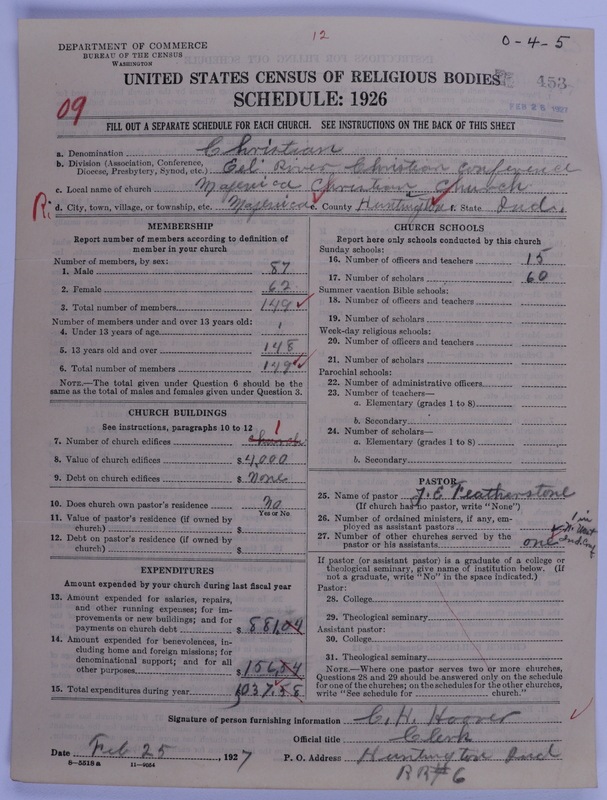 12
0-4-5
DEPARTMENT OF COMMERCE
BUREAU OF THE CENSUS
WASHINGTON
UNITED STATES CENSUS OF RELIGIOUS BODIES
453
SCHEDULE: 1926
FEB 25 1927
09
FILL OUT A SEPARATE SCHEDULE FOR EACH CHURCH. SEE INSTRUCTIONS ON THE BACK OF THIS SHEET
a. Denomination Christian
b. Division (Association, Conference, Diocese, Presbytery, Synod, etc.) Eel River Christian Conference
c. Local name of church Majenica Christian Church
R. d. City, town, village, or township, etc. Majenica e. County Huntington f. State Ind.
MEMBERSHIP
Report number of members according to definition of
member in your church
Number of members, by sex:
1. Male 87
2. Female 62
3. Total number of members 149
Number of members under and over 13 years old:
4. Under 13 years of age 1
5. 13 years old and over 148
6. Total number of members 149
NOTE.—The total given under Question 6 should be the
same as the total of males and females given under Question 3.
CHURCH BUILDINGS
See instructions, paragraphs 10 to 12
1
7. Number of church edifices church
8. Value of church edifices $ 4,000
9. Debt on church edifices $ None
10. Does church own pastor's residence No
Yes or No
11. Value of pastor's residence (if owned by
church) $
12. Debt on pastor's residence (if owned by
church) $
EXPENDITURES
Amount expended by your church during last fiscal year
13. Amount expended for salaries, repairs,
and other running expenses; for im-
provements or new buildings; and for
payments on church debt $ 881.04
14. Amount expended for benevolences, in-
cluding home and foreign missions; for
denominational support; and for all
other purposes $ 156.54
15. Total expenditures during year 1037.58
CHURCH SCHOOLS
Report here only schools conducted by this church
Sunday schools:
16. Number of officers and teachers 15
17. Number of scholars 60
Summer vacation Bible schools:
18. Number of officers and teachers
19. Number of scholars
Week-day religious schools:
20. Number of officers and teachers
21. Number of scholars
Parochial schools:
22. Number of administrative officers
23. Number of teachers—
a. Elementary (grades 1 to 8)
b. Secondary
24. Number of scholars—
a. Elementary (grades 1 to 8)
b. Secondary
PASTOR
25. Name of pastor J. E. Featherstone
(If church has no pastor, write "None")
26. Number of ordained ministers, if any, em-
ployed as assistant pastors
27. Number of other churches served by the
pastor or his assistants one
1 in
If pastor (or assistant pastor) is a graduate of a college or
theological seminary, give name of institution below. (If
not a graduate, write "No" in the space indicated.)
Pastor:
28. College
29. Theological seminary
Assistant pastor:
30. College
31. Theological seminary
NOTE.—Where one pastor serves two or more churches,
Questions 28 and 29 should be answered only on the schedule
for one of the churches; on the schedules for the other churches,
write "See schedule for church."
Signature of person furnishing information C. H. Hoover
Official title Clerk
Date Feb 25, 1927 P. O. Address Huntington Ind
8—5518a 11—9054
RR#6